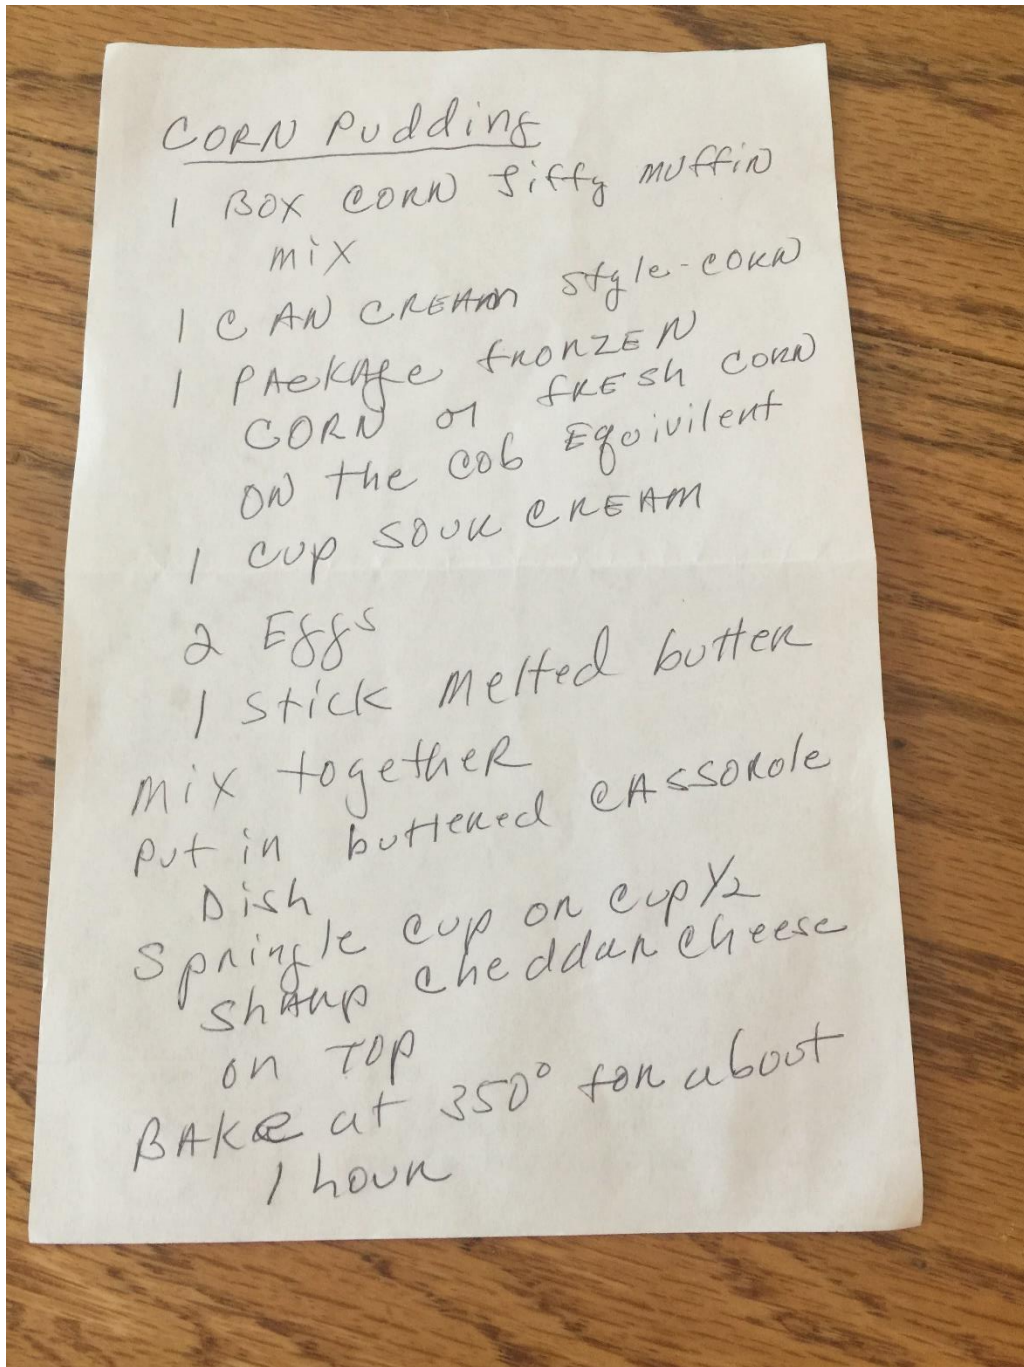 CORN Pudding
1 BOX CORN Jiffy MUffiN
mix
1 CAN CREAM style-CORN
1 PAckAge fRONZEN
CORN or fRESh CORN
ON the cob Eqoivilent
1 cup SOUR CREAM
2 Eggs
1 stick melted butteR
mix togetheR
Put in butteRed CASSOROle
Dish
SpRingle cup oR cup 1/2
shARp cheddaR cheese
on TOP
BAKe at 350° foR about
1 houR